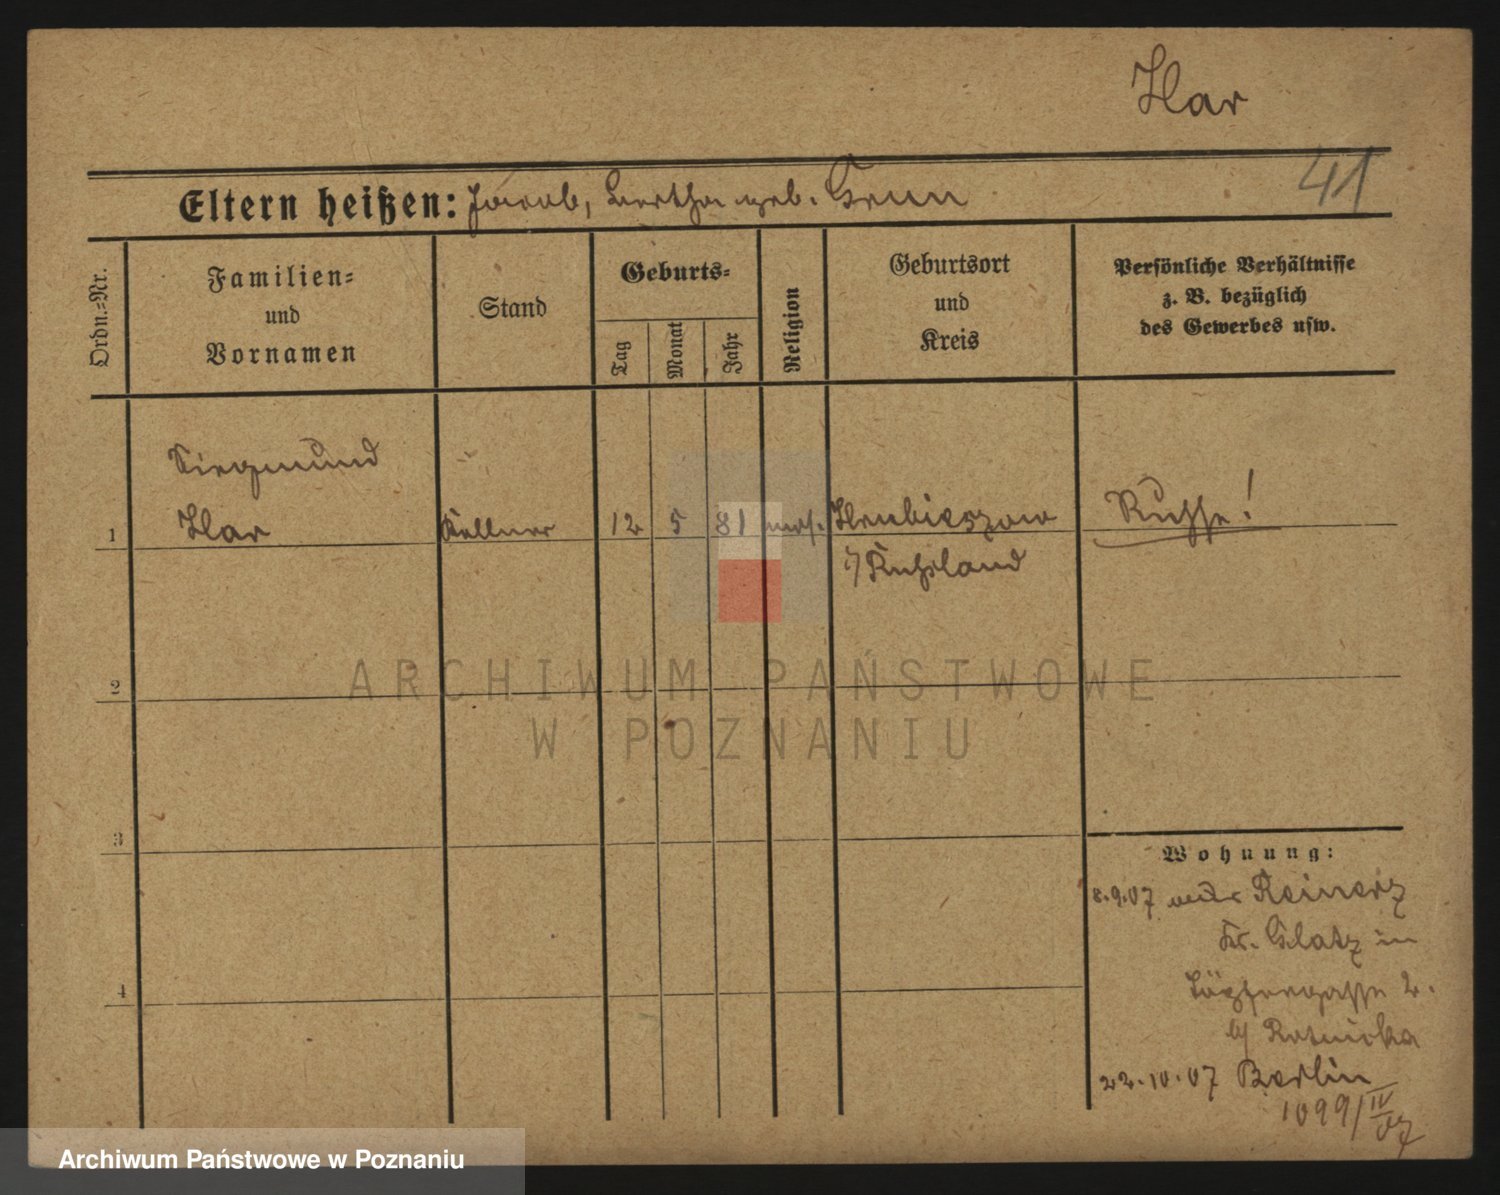 Har
41
Eltern heißen: Jacob, Bertha geb. Grün
Ordn.-Nr.
Familien-
und
Vornamen
Stand
Geburts-
Tag
Monat
Jahr
Religion
Geburtsort
und
Kreis
Persönliche Verhältnisse
z. B. bezüglich
des Gewerbes usw.
Siegmund
1 Har Kellner 12 5 81 mos. Hrubieszow Russe!
Rußland
2
3
4
Wohnung:
8.9.07 Reinerz
Kr. Glatz in
Töpfergasse 2.
b/
22.10.07 Berlin
1099/IV 07
ARCHIWUM PAŃSTWOWE
W POZNANIU
Archiwum Państwowe w Poznaniu